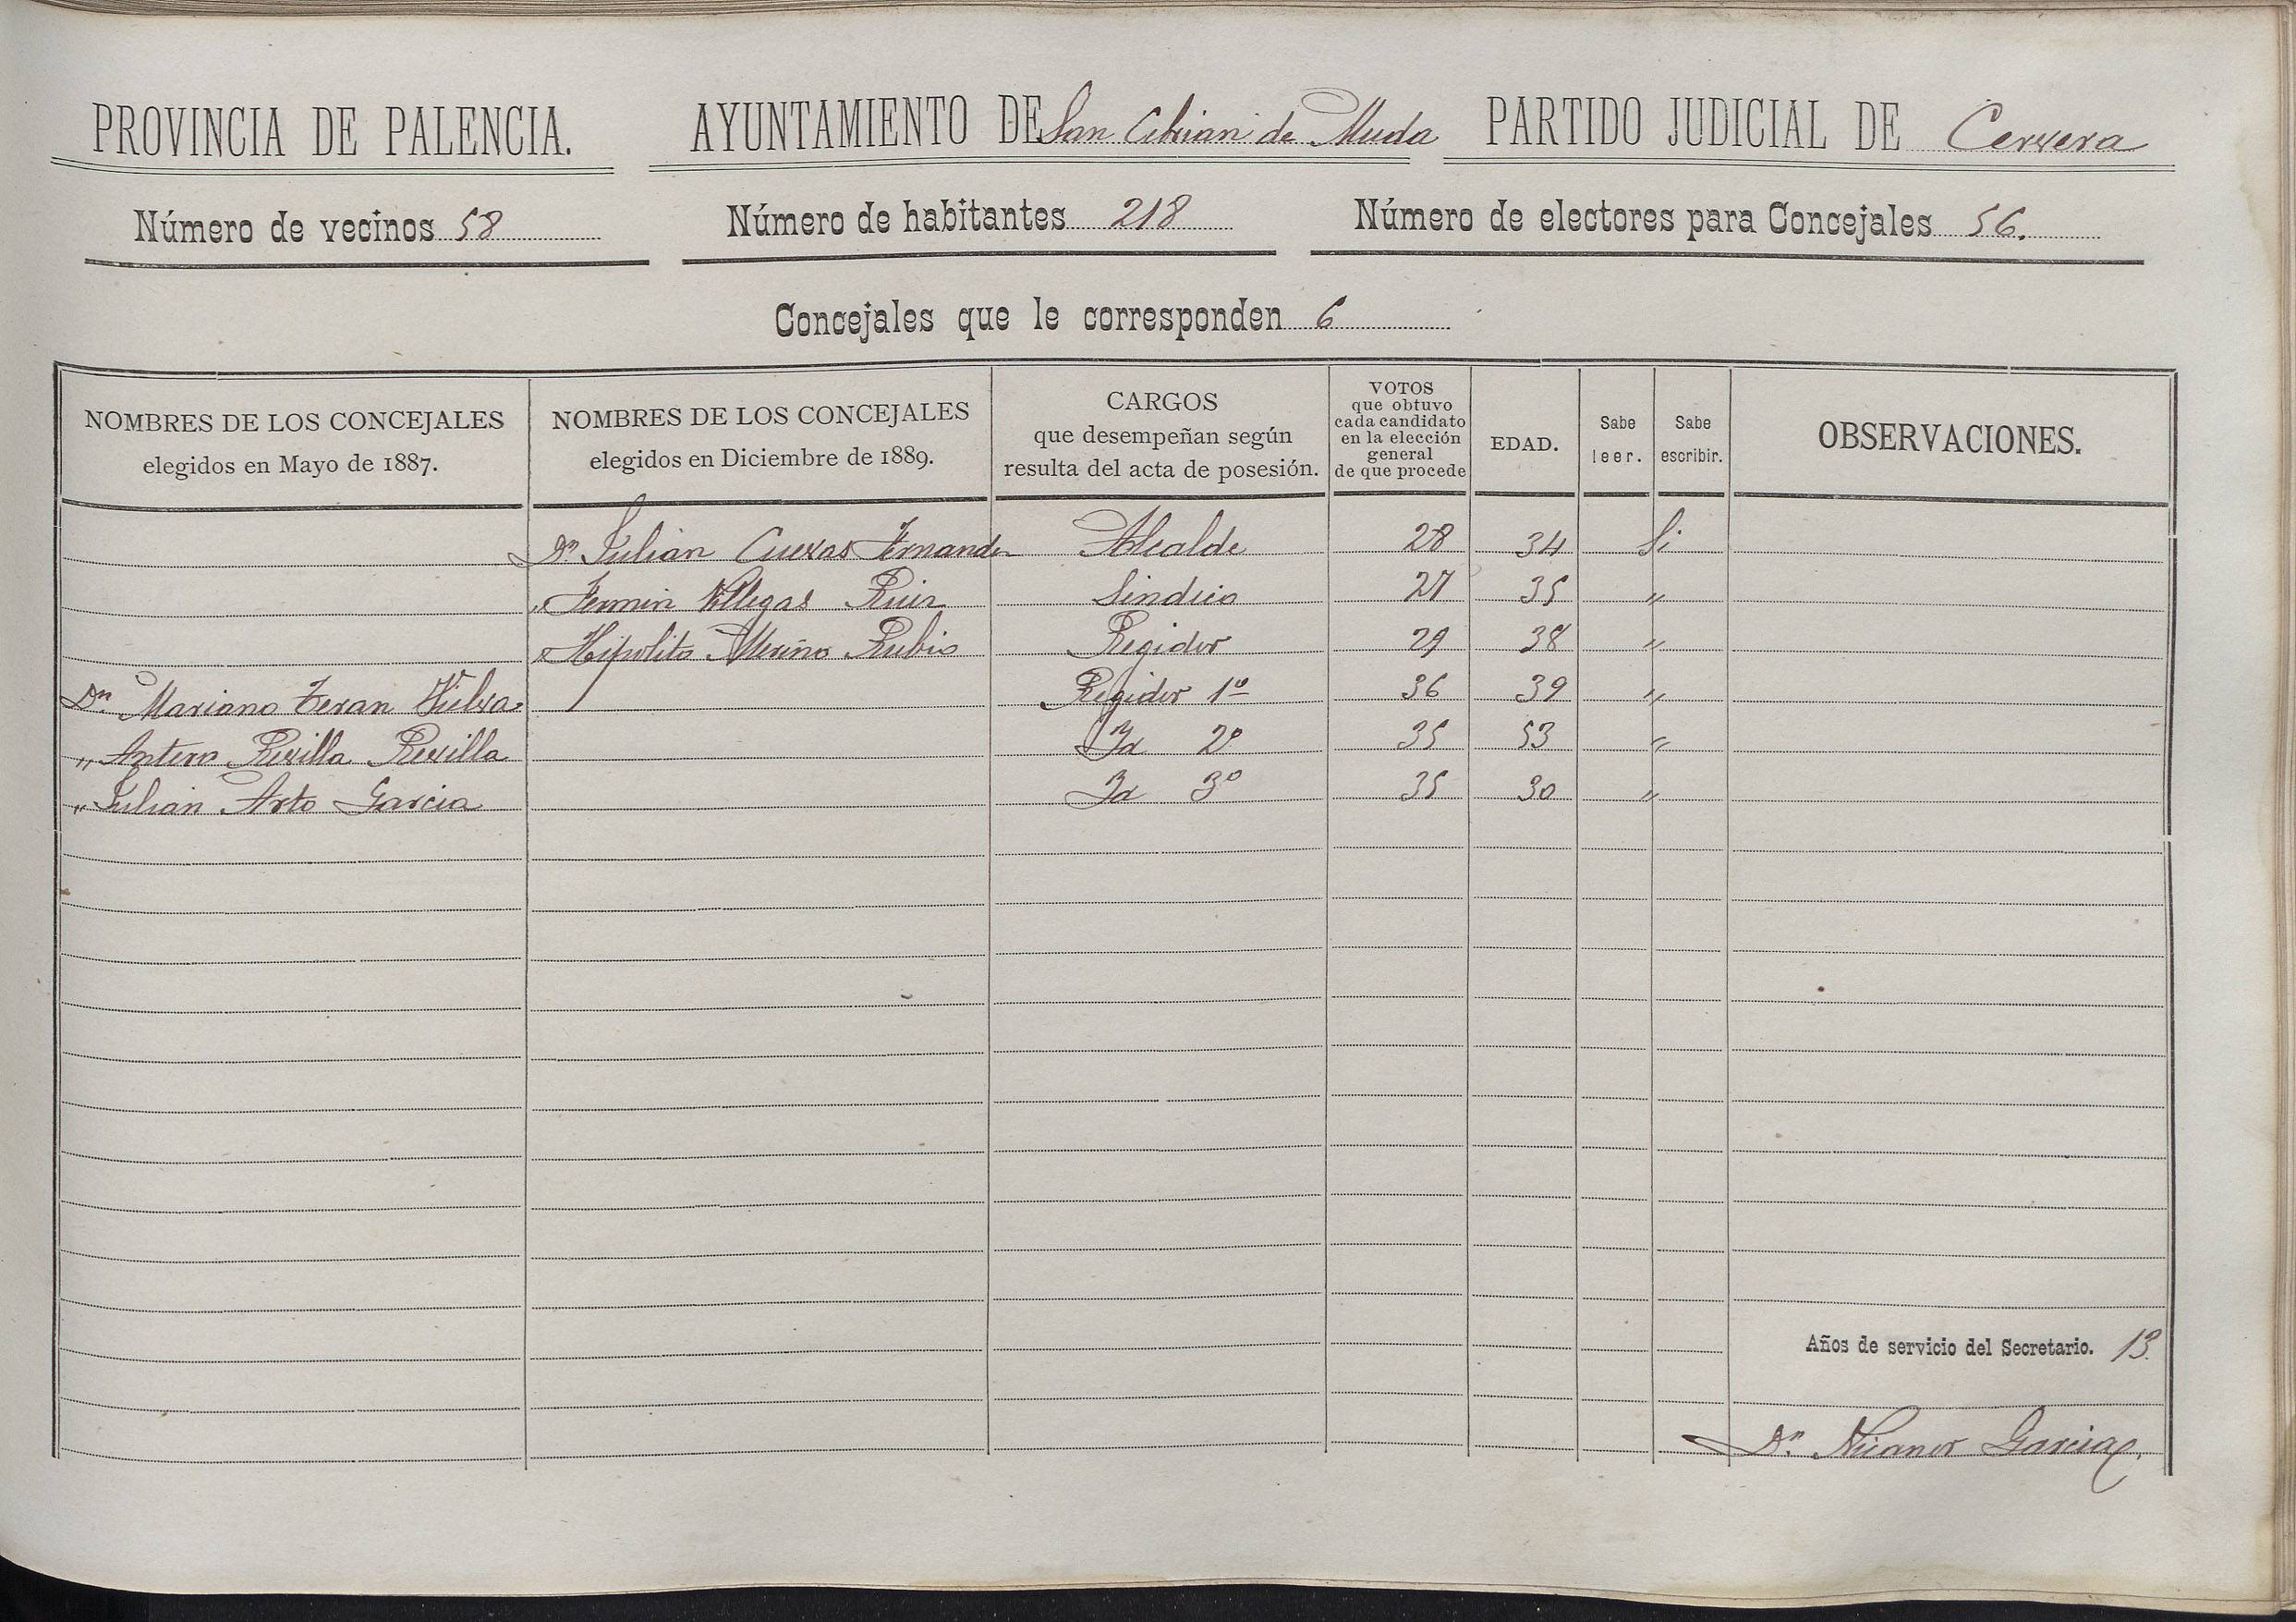 PROVINCIA DE PALENCIA. AYUNTAMIENTO DE San Cebrian de Muda PARTIDO JUDICIAL DE Cervera
Número de vecinos 58 Número de habitantes 218 Número de electores para Concejales 56.
Concejales que le corresponden 6
NOMBRES DE LOS CONCEJALES elegidos en Mayo de 1887. NOMBRES DE LOS CONCEJALES elegidos en Diciembre de 1889. CARGOS que desempeñan según resulta del acta de posesión. VOTOS que obtuvo cada candidato en la elección general de que procede EDAD. Sabe leer. Sabe escribir. OBSERVACIONES.
Dn Julian Cuevas Fernandez Alcalde 28 34 Si
" Fermin Villegas Ruiz Sindico 27 35 "
" Hipolito Merino Rubio Regidor 29 38 "
Dn Mariano Teran Vielva Regidor 1º 36 39 "
" Antero Revilla Revilla Id 2º 35 53 "
" Julian Arto Garcia Id 3º 35 30 "
Años de servicio del Secretario. 13.
Dn Nicanor Garcia